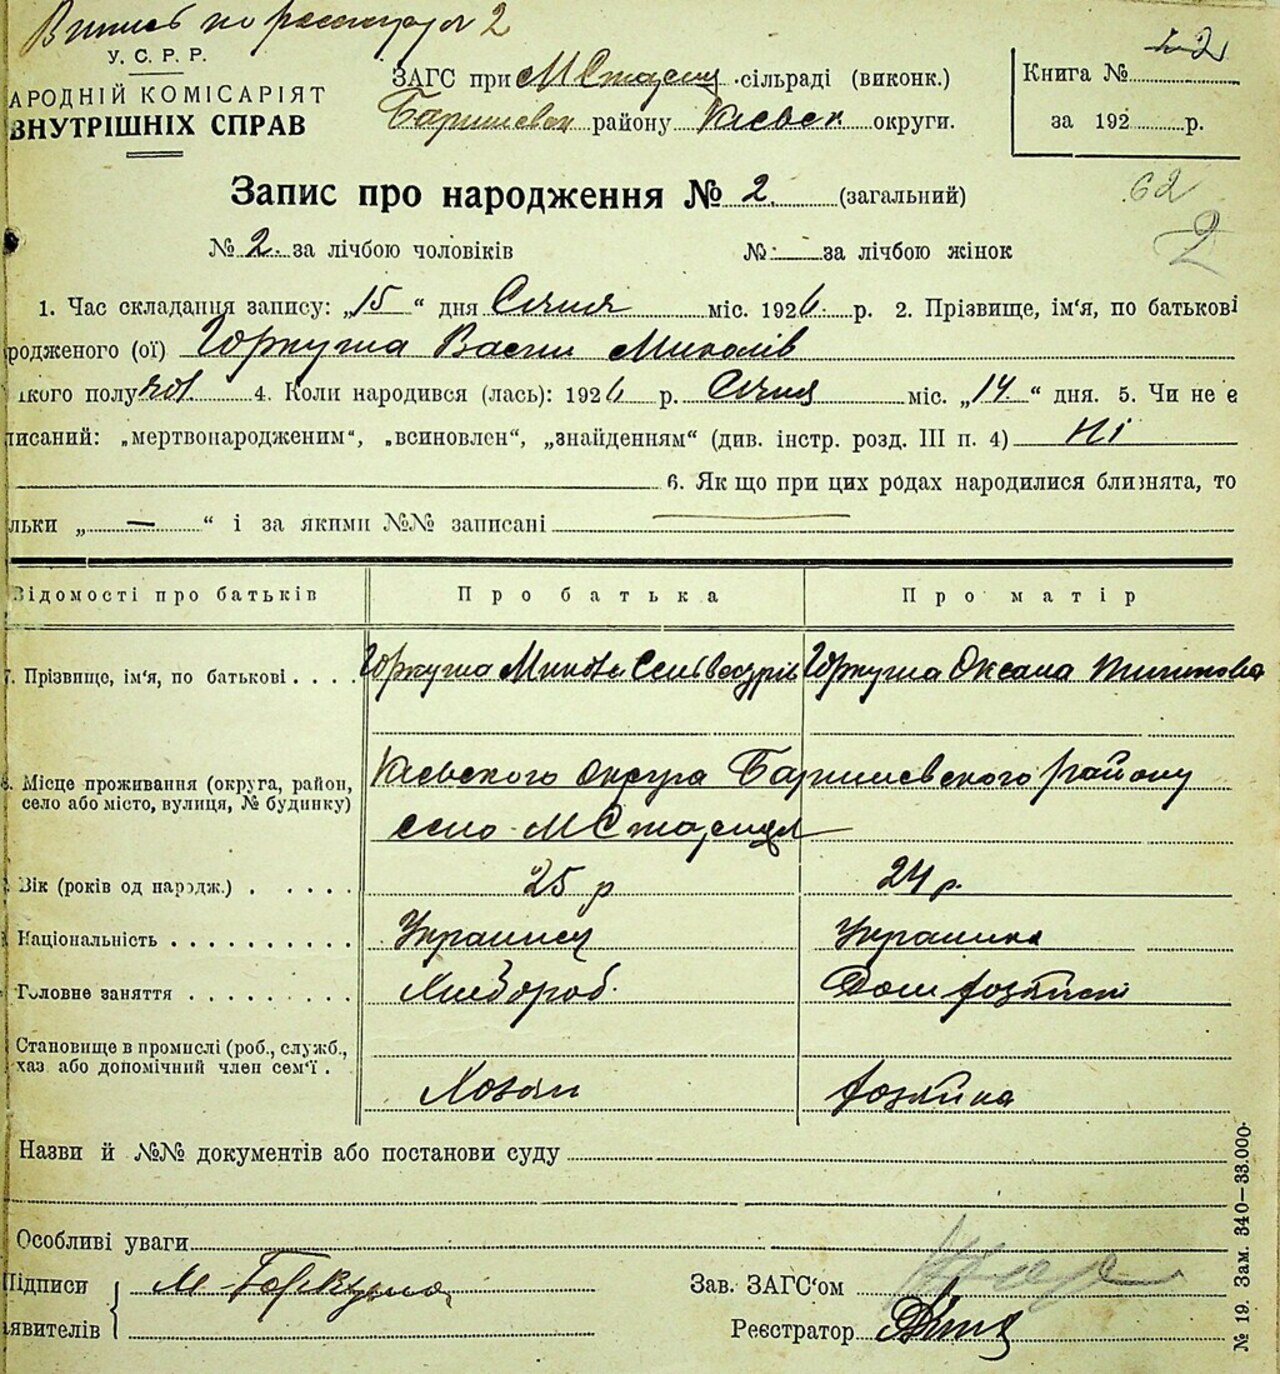 Випись по реестру № 2
У. С. Р. Р.
АРОДНІЙ КОМІСАРІЯТ
ВНУТРІШНІХ СПРАВ
ЗАГС при М Стариця сільраді (виконк.)
Баришевск району Киевск округи.
Книга № 2
за 192 р.
Запис про народження № 2. (загальний)
62
2
№ 2. за лічбою чоловіків № — за лічбою жінок
1. Час складання запису: „15“ дня Січня міс. 1926. р. 2. Прізвище, ім‘я, по батькові
родженого (ої) Горкуша Васил Миколів
ікого полу чол. 4. Коли народився (лась): 1926 р. Січня міс. „14“ дня. 5. Чи не є
писаний: „мертвонародженим“, „всиновлен“, „знайденням“ (див. інстр. розд. III п. 4) Ні
6. Як що при цих родах народилися близнята, то
льки „ — “ і за якими №№ записані
Відомості про батьків Про батька Про матір
7. Прізвище, ім‘я, по батькові . . . . Горкуша Микола Сельвестрів Горкуша Оксана
Киевского округа Баришевского району
Місце проживання (округа, район,
село або місто, вулиця, № будинку)
село М Стариця
Вік (років од народж.) . . . . . 25 р 24 р.
Національність . . . . . . . . . . Украинец Украинка
Головне заняття . . . . . . . . . Хлебороб. Дом хозяйств
Становище в промислі (роб., служб.,
хаз або допомічний член сем‘ї .
Хозяин хозяйка
Назви й №№ документів або постанови суду
Особливі уваги
Підписи М Горкуша
аявителів
Зав. ЗАГС‘ом
Реєстратор
№ 19. Зам. 340—33.000.